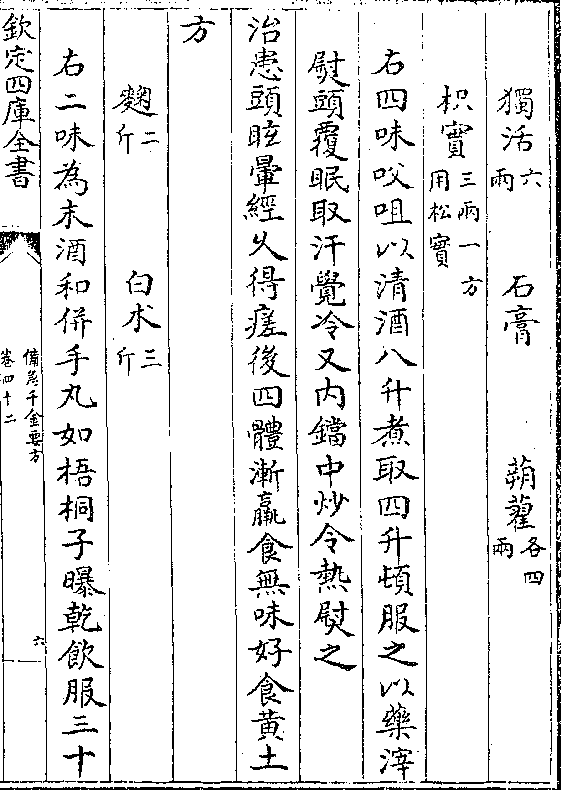 獨活六兩 石膏 蒴藋各四兩
枳實三兩一方用松實
右四味㕮咀以清酒八升煮取四升頓服之以藥滓
熨頭覆眠取汗覺冷又内鐺中炒令熱熨之
治患頭眩暈經久得瘥後四體漸羸食無味好食黄土
方
麴二斤 白朮三斤
右二味為末酒和併手丸如梧桐子曝乾飲服三十
欽定四庫全書
備急千金要方
卷四十二
六